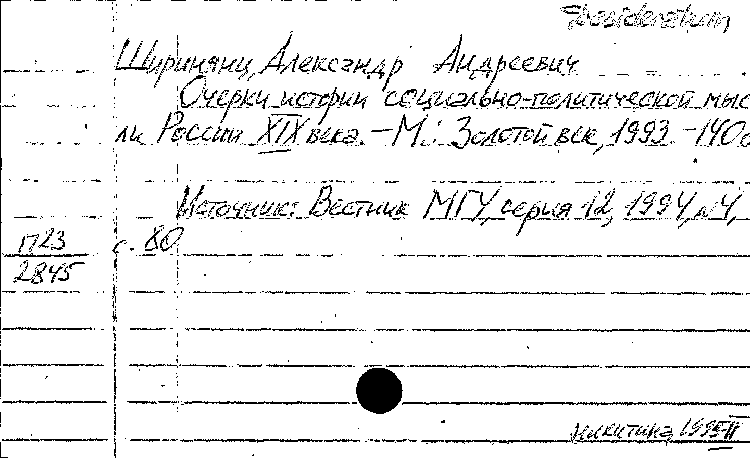 Desideratum
Ширинянц, Александр Андреевич
Очерки истории социально-политической мыс
ли России XIX века. – М.: Золотой век, 1993. – 140с
Источник: Вестник МГУ, серия 12, 1994, №4,
1723 с. 80
2845
Никитина, 1995 II